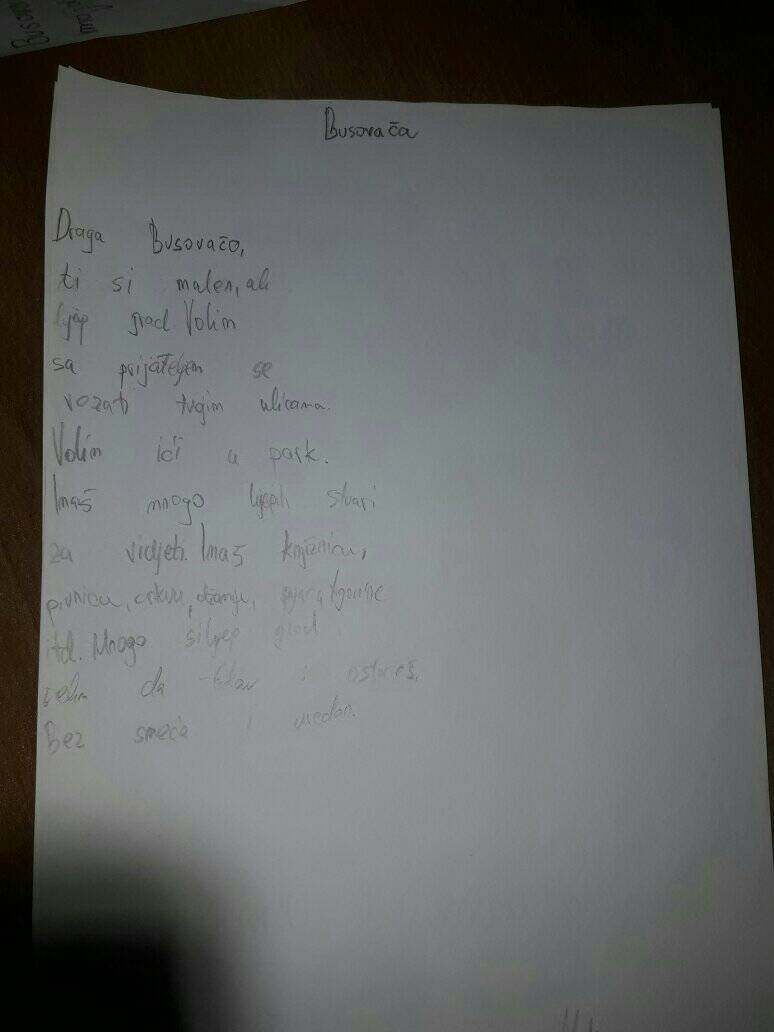 Busovača
Draga Busovačo,
ti si malen, ali
lijep grad. Volim
sa prijateljem se
vozati tvojim ulicama.
Volim ići u park.
Imaš mnogo lijepih stvari
za vidjeti. Imaš knjižnicu,
pivnicu, crkvu, džamiju,
itd. Mnogo si lijep grad
želim da takav i ostaneš.
Bez smeća i uredan.